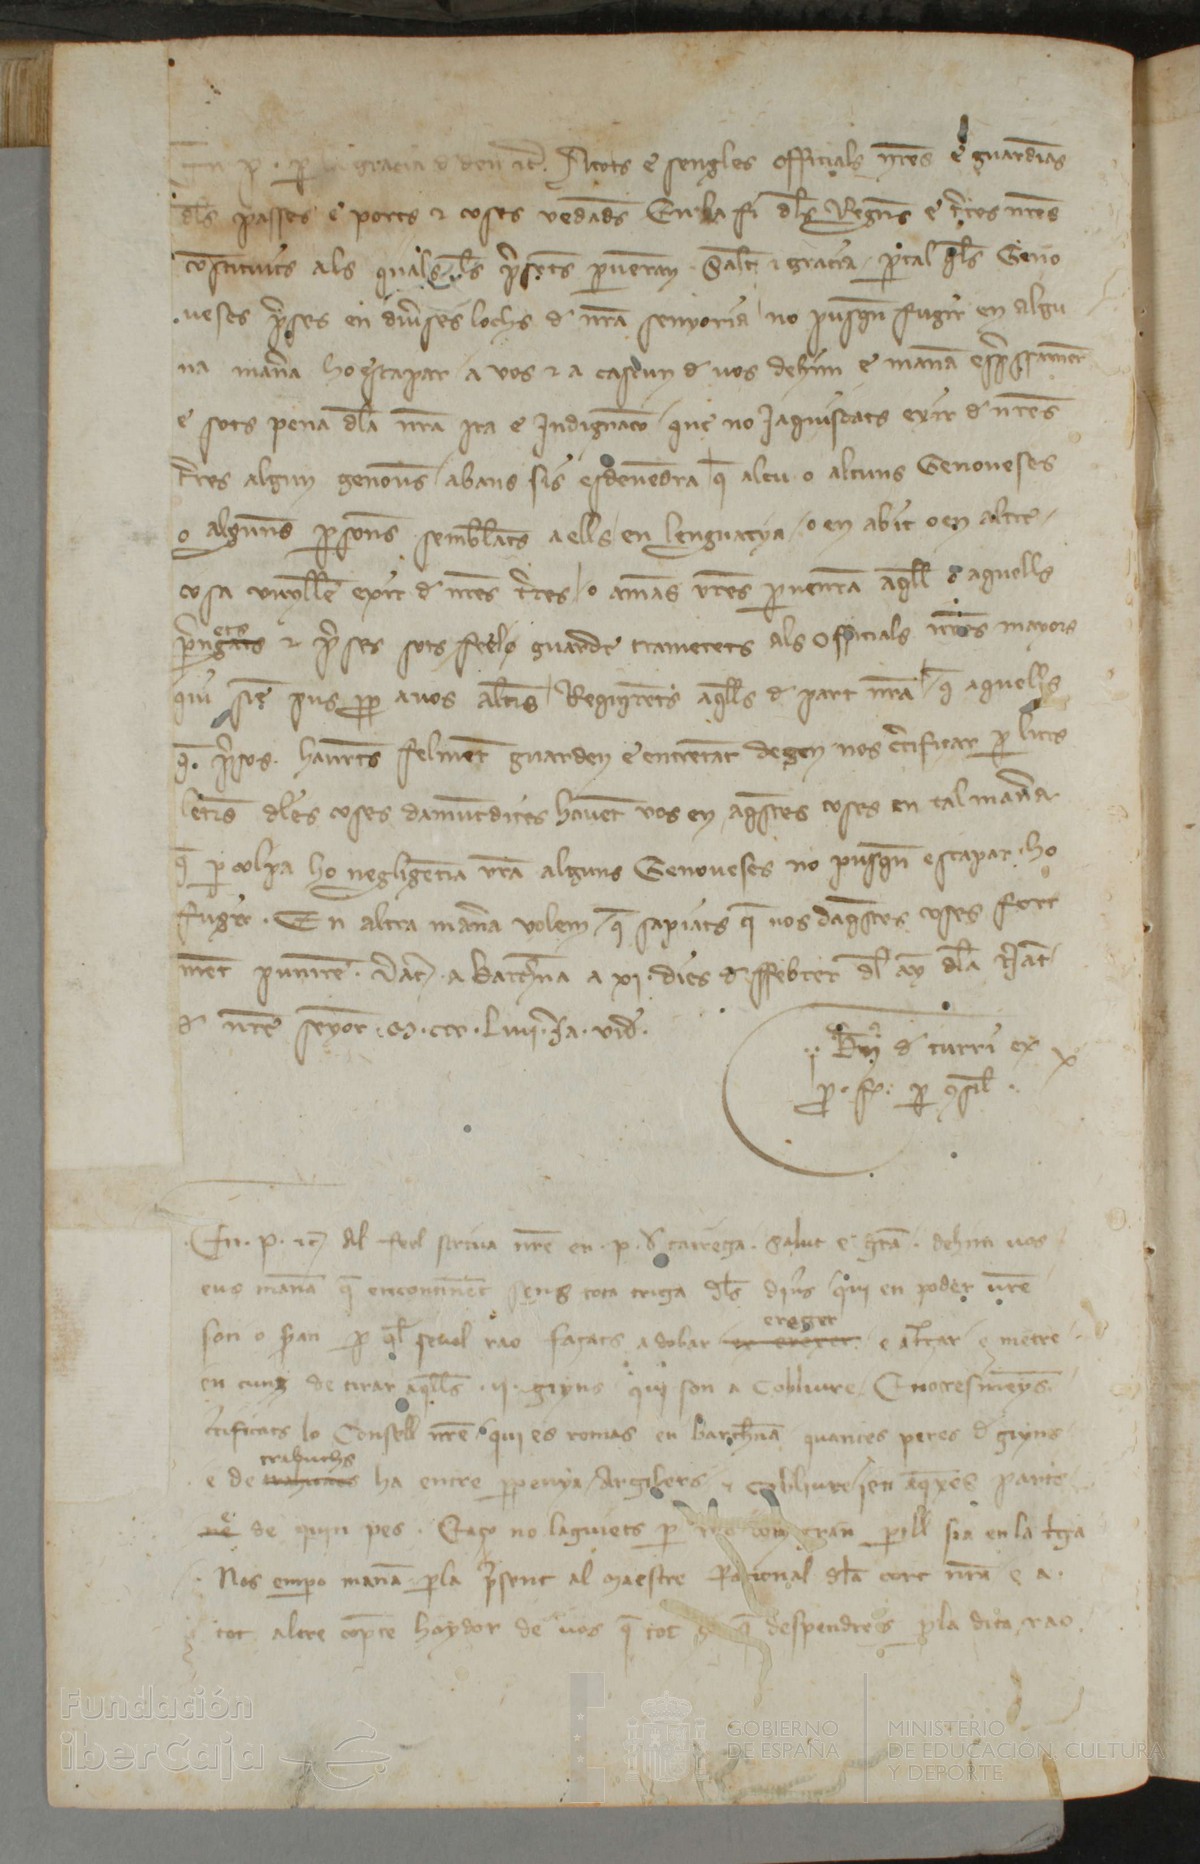 En P. per la gracia d deu etc. A tots e sengles officials nres e guardias
dls passes e ports e coses vedads en la fi dls Regns e terres nres
constituits als quals ls presets pervenran. Salut e gracia. per tal qls Geno
veses preses en diverses lochs d nra senyoria no pusqn fugir en algu
na manera ho escapar a vos e a cascun d vos dehim e manam espressament
e sots pena dla nra ira e Indignacio que no jaquiscats exir d nres
terres algun genoves abans sis esdevendra q alcu o alcuns Genoveses
o alguns persones semblats a ells en lenguatya o en abit o en altre
cosa exir d nres terres o a mans vres pervenran aqll d aquells
prengats ets e preses sots feel guarda trametets als officials nres mayors
qui sie pus prop a vos d part nra q aquells
q. presos. haurets felment guarden e entretat degen nos certificar per lurs
letres dles coses damutdites havet vos en aqstes coses en tal manera
q per colpa ho negligecia vra alguns Genoveses no pusqn escapar ho
fugir. En altra manera volem q sapiats q nos daqstes coses fort
met punirie. Dat a Barchna a xi dies d ffebrer dl ay dla Nat
d nre seyor. M. ccc. Liiii. Ja. vid.
d turri ex
p. fo. per csil.
En. P. etc Al feel scriva nre en. P. d carrega. Salut e gra. dehim vos
eus manam q encontinet sens tota triga dls diners qui en poder vre
son o seran per ql sevol rao façats adobar ereger e altzar e metre
en cuns de tirar aqlls. ii. giyns qui son a Cobliure. E no res meyns
certificats lo Consell nre qui es romas en Barchna quantes peres d giyns
e de trabuchs ha entre perpenya Argilers e cobliure en aqxes parts
ne de quin pes. E aço no laquiets per res com gran perill sia en la triga
Nos empero manam per la present al maestre Racional dla cort nra e a
tot altre compte hoydor de vos q tot ço q despendrets per la dita rao
Fundación
iberCaja
GOBIERNO
DE ESPAÑA
MINISTERIO
DE EDUCACIÓN, CULTURA
Y DEPORTE